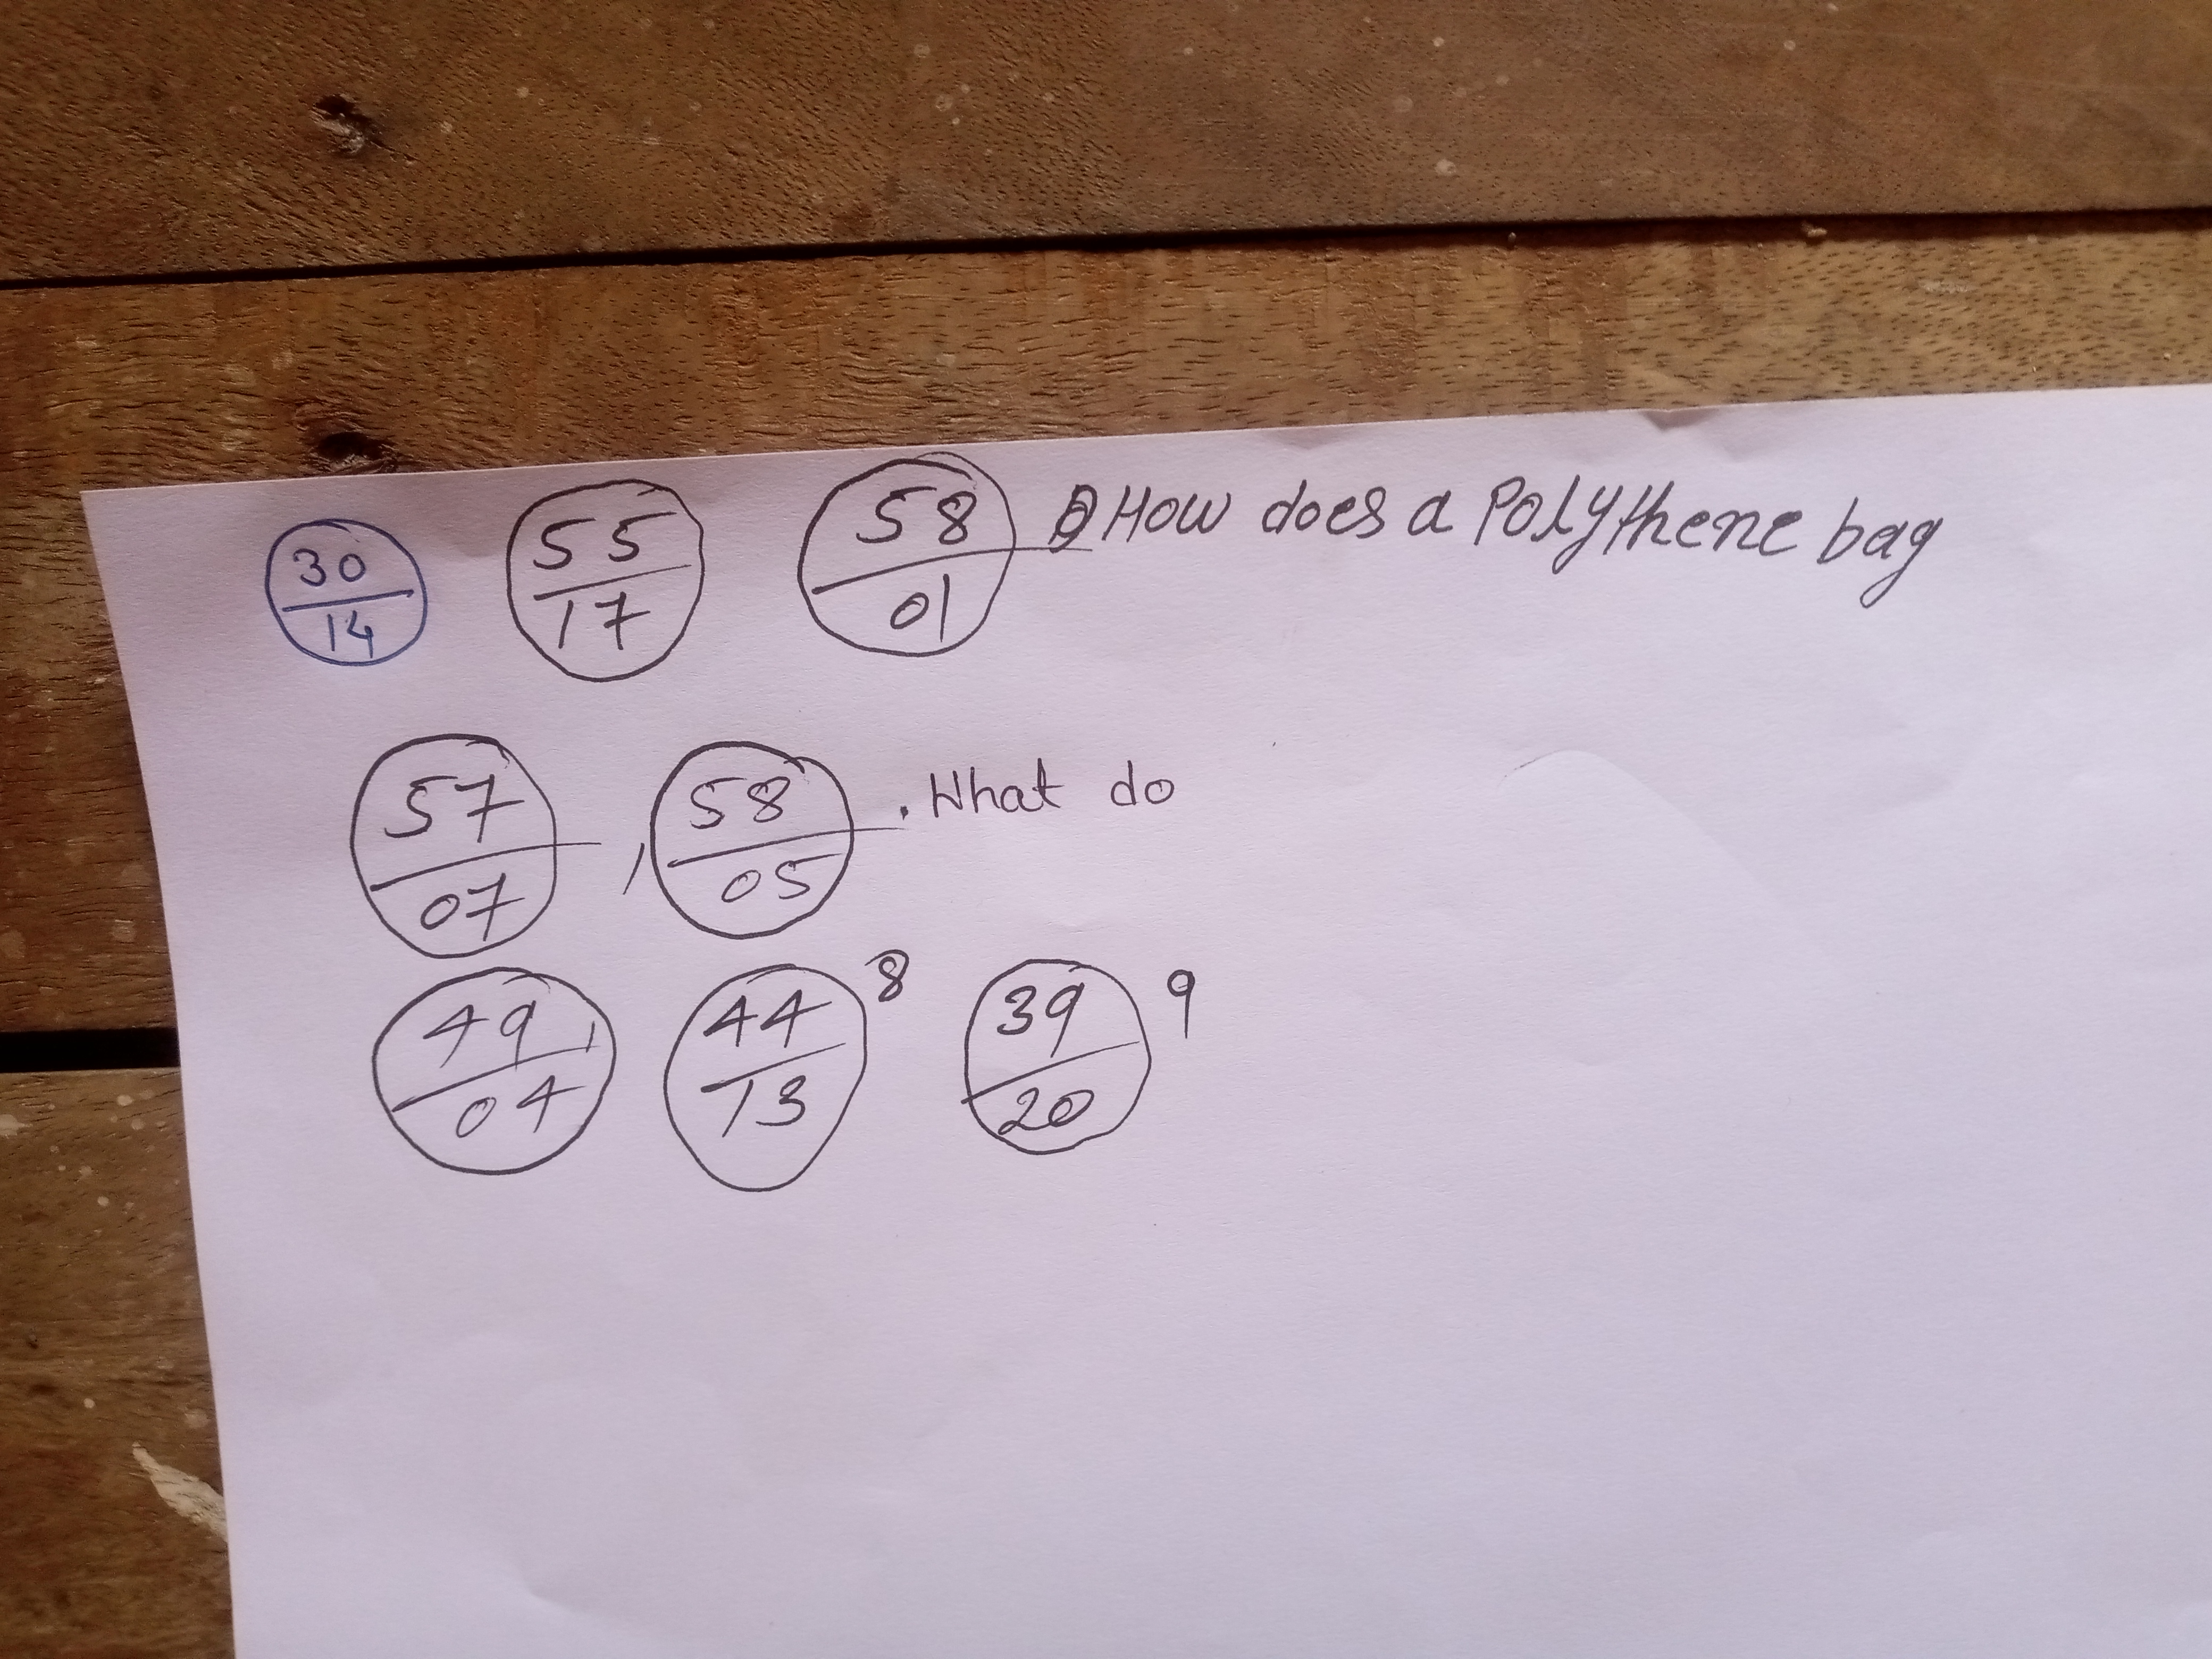 30/14 55/17 58/01 How does a Polythene bag
57/07 , 58/05 . What do
49/04 44/13 8 39/20 9